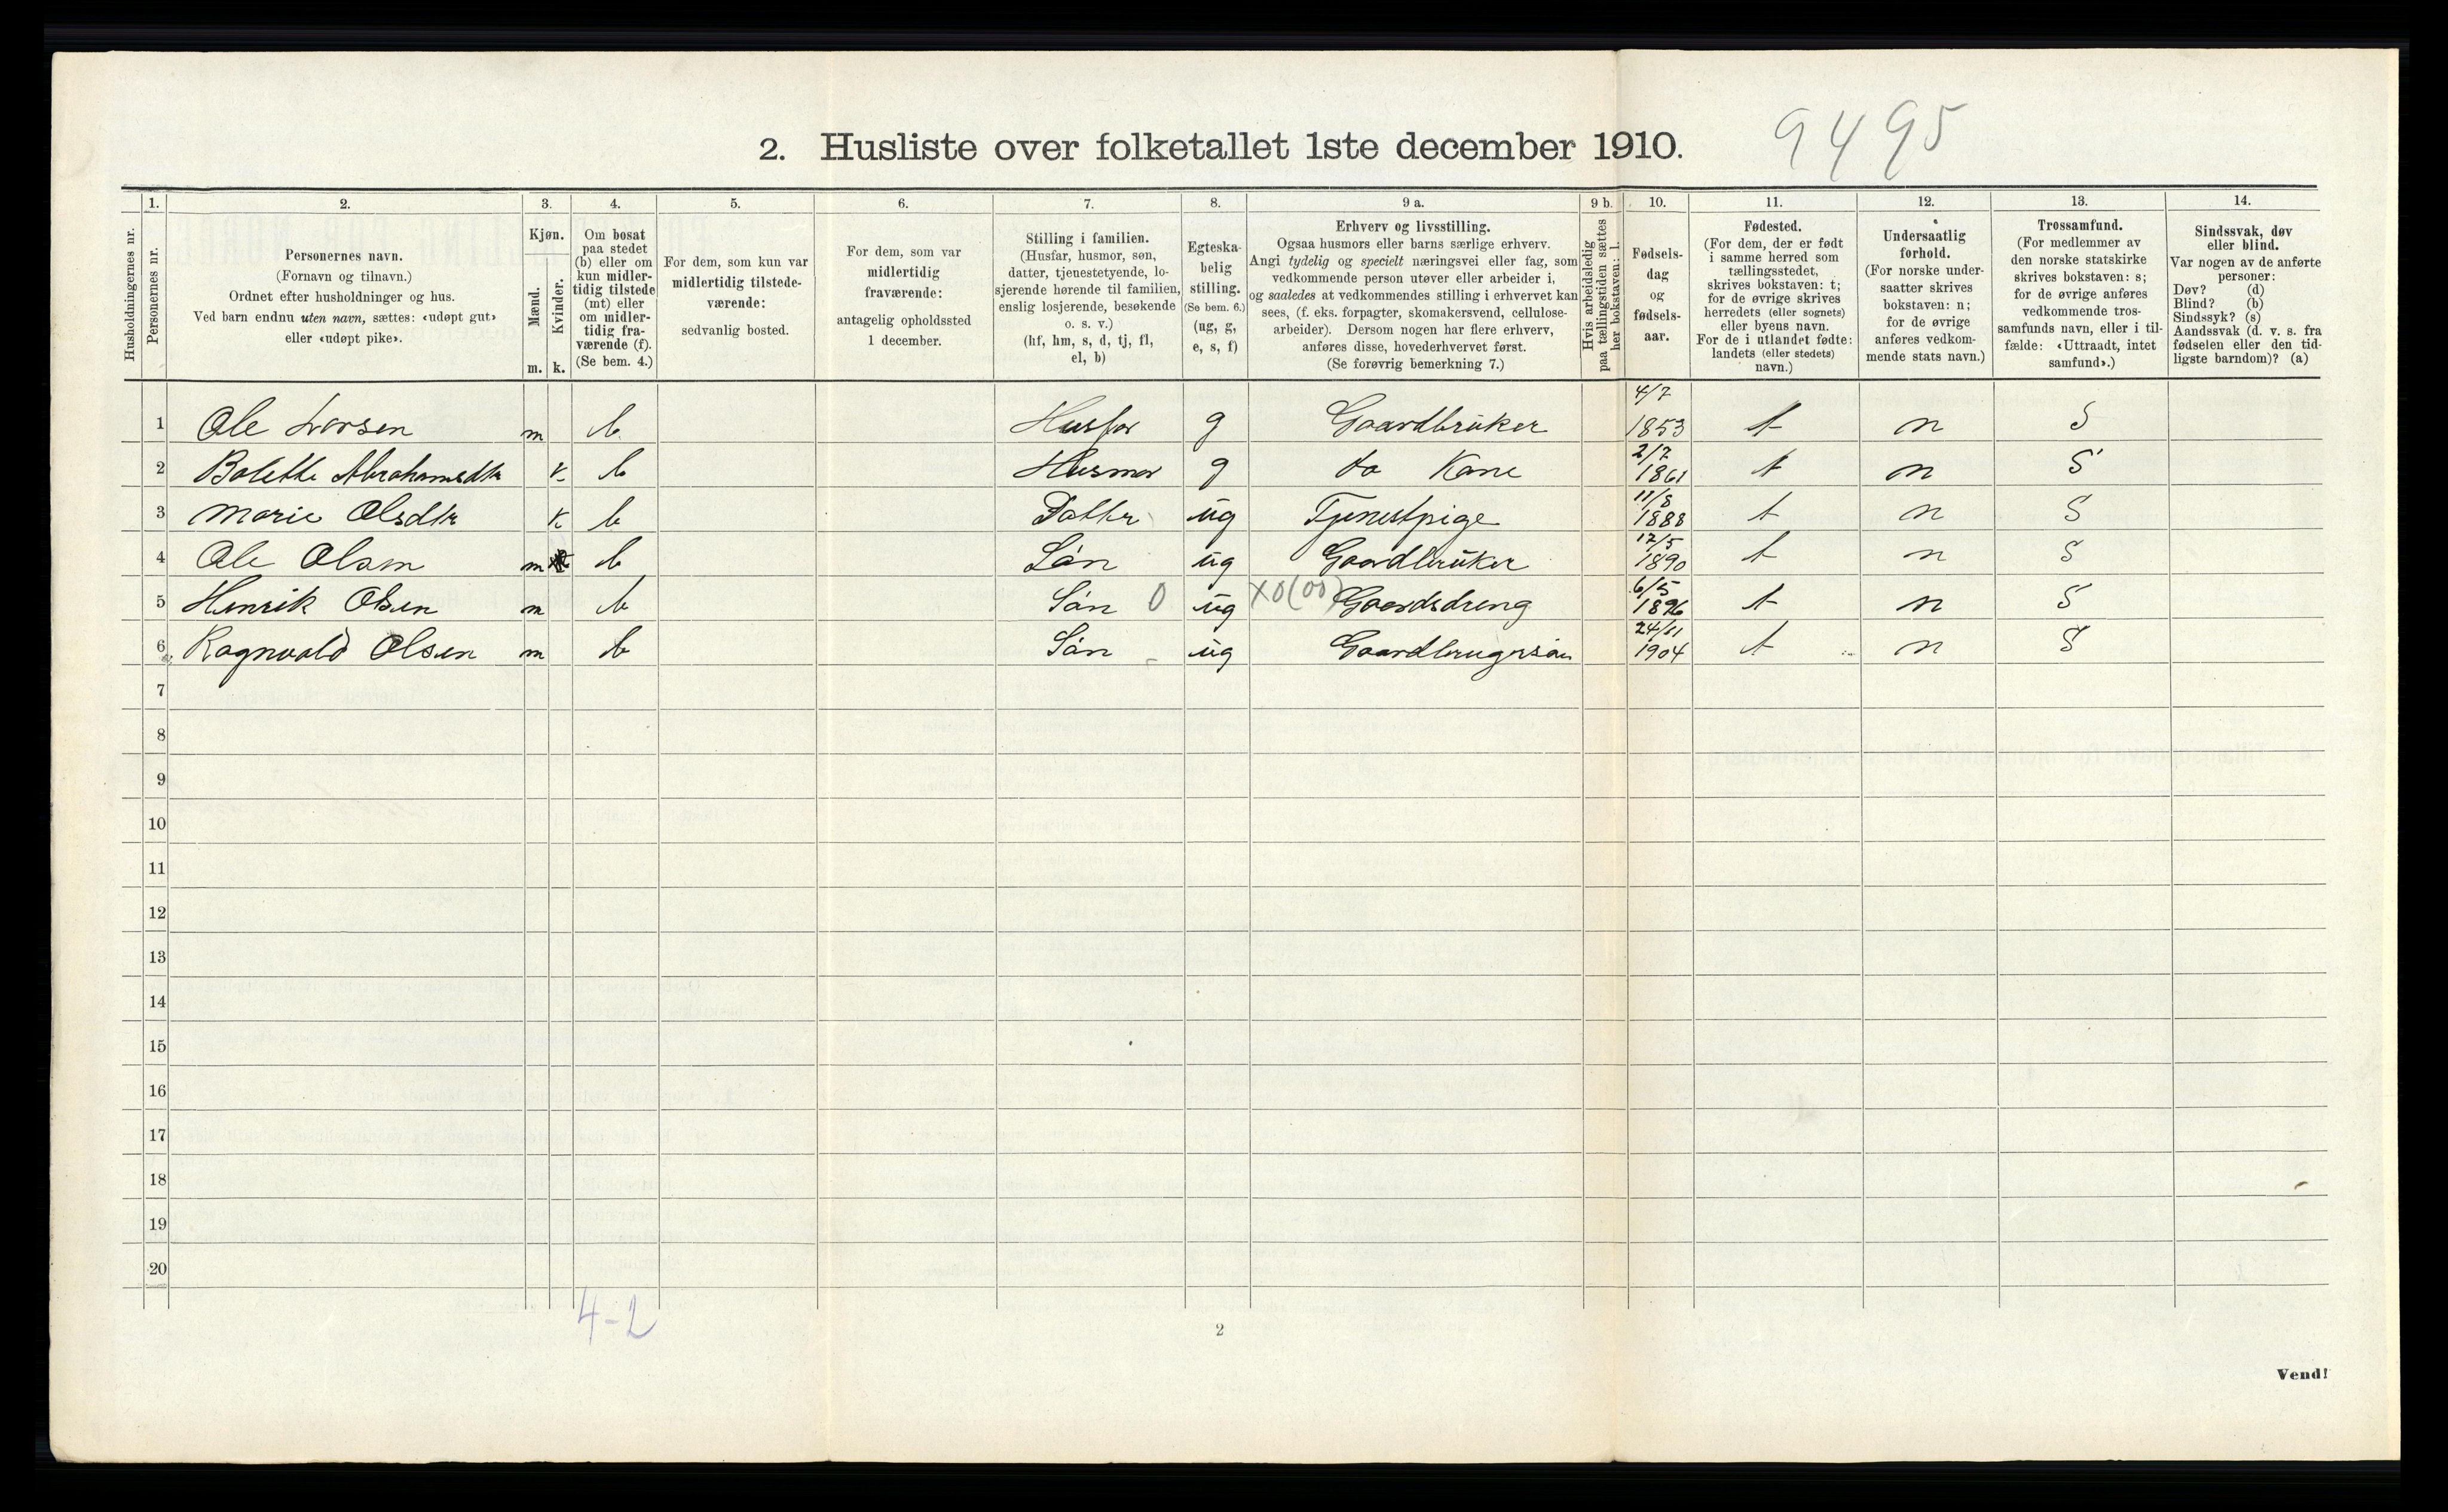 9495
2. Husliste over folketallet 1ste december 1910.
Husholdningernes nr.
1.
Personernes nr.
2.
Personernes navn.
(Fornavn og tilnavn.)
Ordnet efter husholdninger og hus.
Ved barn endnu uten navn, sættes: «udøpt gut»
eller «udøpt pike».
3.
Kjøn.
Mænd.
Kvinder.
m. k.
4.
Om bosat
paa stedet
(b) eller om
kun midler-
tidig tilstede
(mt) eller
om midler-
tidig fra-
værende (f).
(Se bem. 4.)
5.
For dem, som kun var
midlertidig tilstede-
værende:
sedvanlig bosted.
6.
For dem, som var
midlertidig
fraværende:
antagelig opholdssted
1 december.
7.
Stilling i familien.
(Husfar, husmor, søn,
datter, tjenestetyende, lo-
sjerende hørende til familien,
enslig losjerende, besøkende
o. s. v.)
(hf, hm, s, d, tj, fl,
el, b)
8.
Egteska-
belig
stilling.
(Se bem. 6.)
(ug, g,
e, s, f)
9 a.
Erhverv og livsstilling.
Ogsaa husmors eller barns særlige erhverv.
Angi tydelig og specielt næringsvei eller fag, som
vedkommende person utøver eller arbeider i,
og saaledes at vedkommendes stilling i erhvervet kan
sees, (f. eks. forpagter, skomakersvend, cellulose-
arbeider). Dersom nogen har flere erhverv,
anføres disse, hovederhvervet først.
(Se forøvrig bemerkning 7.)
9 b.
Hvis arbeidsledig
paa tællingstiden sættes
her bokstaven: l.
10.
Fødsels-
dag
og
fødsels-
aar.
11.
Fødested.
(For dem, der er født
i samme herred som
tællingsstedet,
skrives bokstaven: t;
for de øvrige skrives
herredets (eller sognets)
eller byens navn.
For de i utlandet fødte:
landets (eller stedets)
navn.)
12.
Undersaatlig
forhold.
(For norske under-
saatter skrives
bokstaven: n;
for de øvrige
anføres vedkom-
mende stats navn.)
13.
Trossamfund.
(For medlemmer av
den norske statskirke
skrives bokstaven: s;
for de øvrige anføres
vedkommende tros-
samfunds navn, eller i til-
fælde: «Uttraadt, intet
samfund».)
14.
Sindssvak, døv
eller blind.
Var nogen av de anførte
personer:
Døv? (d)
Blind? (b)
Sindssyk? (s)
Aandssvak (d. v. s. fra
fødselen eller den tid-
ligste barndom)? (a)
1 Ole Larsen m b. Husfar g Gaardbruker 4/7 1853 t n S
2 Bolette Abrahamsdtr k b Husmor g do Kone 2/7 1861 t n S
3 Marie Olsdtr k b Dattr ug Tjenestpige 11/8 1888 t n S
4 Ole Olsen m b Søn ug Gaardbruker 12/5 1890 t n S
5 Henrik Olsen m b Søn 0 ug X0(00) Gaardsdreng 6/5 1896 t n S
6 Ragnvald Olsen m b Søn ug Gaardbrugersøn 24/11 1904 t n S
7
8
9
10
11
12
13
14
15
16
17
18
19
20
4-2
2
Vend!